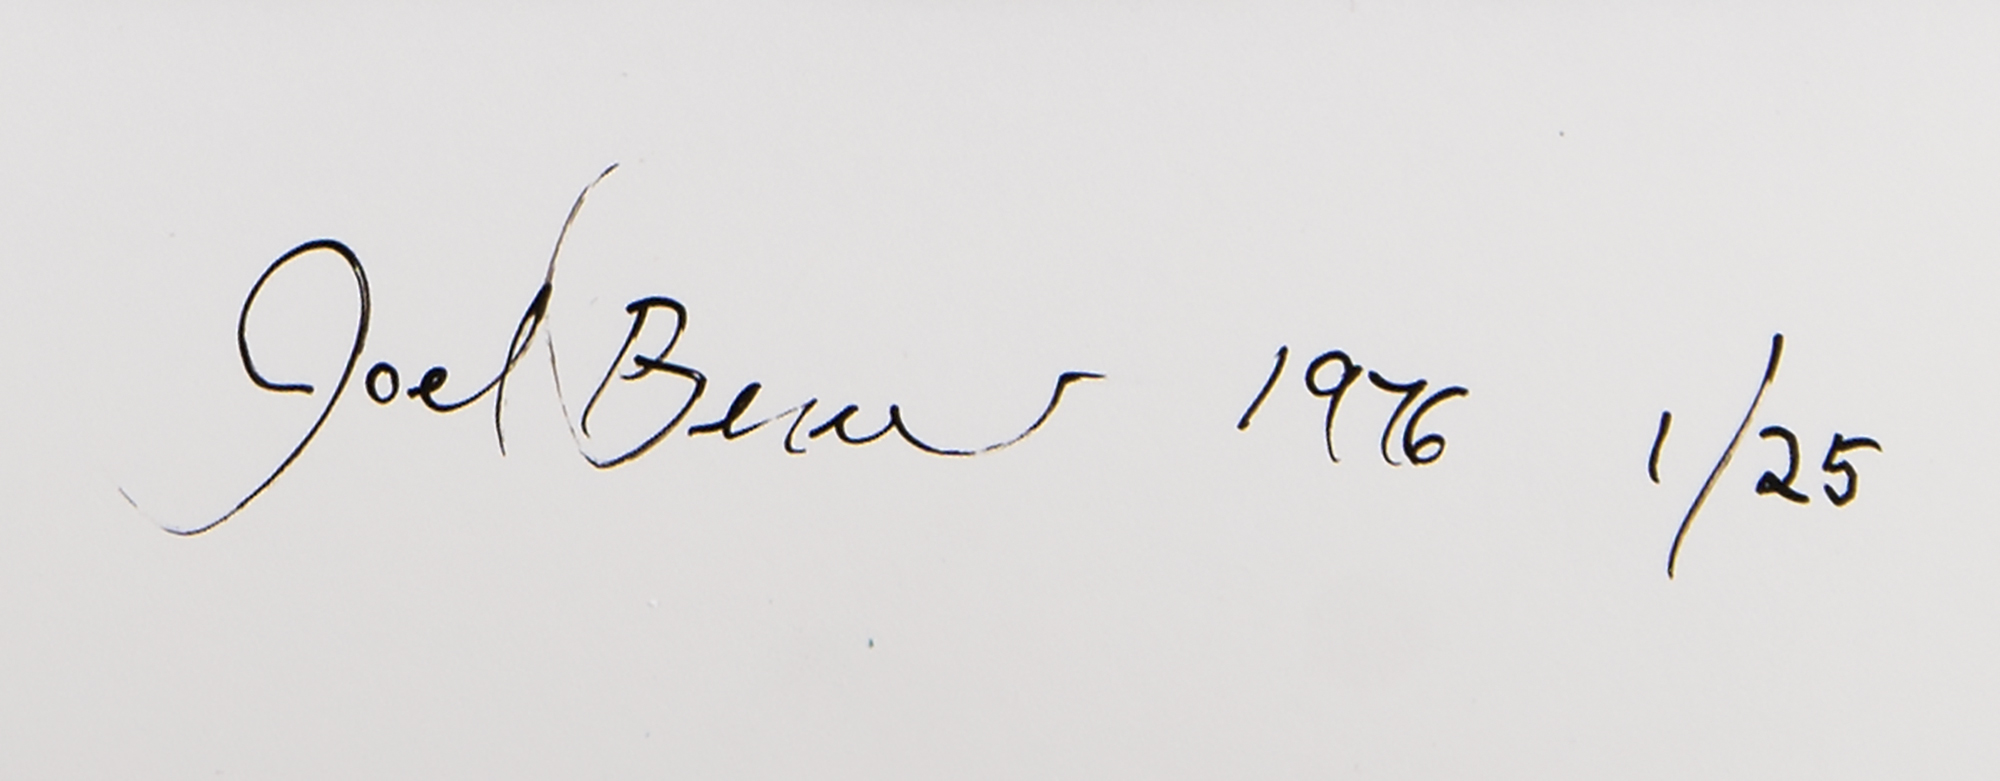 Joel 1976 1/25